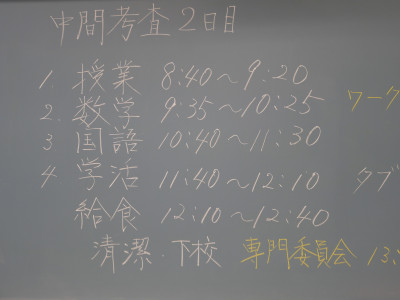 中間考査2日目
1. 授業 8:40～9:20
2. 数学 9:35～10:25 ワーク
3 国語 10:40～11:30
4. 学活 11:40～12:10 タブ
給食 12:10～12:40
清潔・下校 専門委員会 13: